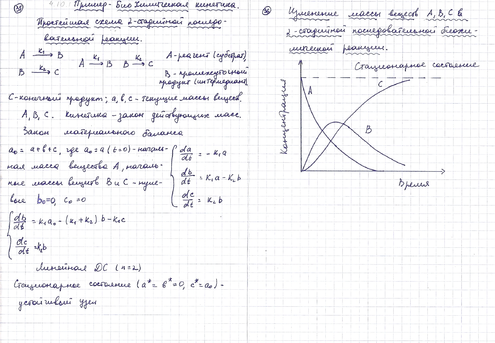 38
Пример. Биохимическая кинетика.
Простейшая схема 2-стадийной последо-
вательной реакции.
A →k₁ B
B →k₂ C
A →k₁ B →k₂ C
A - реагент (субстрат)
B - промежуточный
продукт (интермедиат)
C - конечный продукт; a, b, c - текущие массы веществ
A, B, C. Кинетика - закон действующих масс.
Закон материального баланса
a₀ = a+b+c, где a₀ = a(t=0) - началь-
ная масса вещества A, началь-
ные массы веществ B и C - нуле-
вые b₀=0, c₀=0
da/dt = -k₁a
db/dt = k₁a - k₂b
dc/dt = k₂b
db/dt = k₁a₀ - (k₁+k₂)b - k₁c
dc/dt = k₂b
Линейная ДС (n=2)
Стационарное состояние (a* = b* = 0, c* = a₀) -
устойчивый узел
Изменение массы веществ A, B, C в
2-стадийной последовательной биохи-
мической реакции.
Стационарное состояние
A
C
B
Концентрация
Время